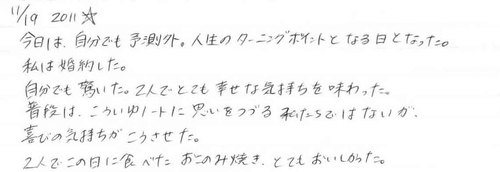 11/19 2011☆
今日は、自分でも予測外。人生のターニングポイントとなる日となった。
私は婚約した。
自分でも驚いた。2人でとても幸せな気持ちを味わった。
普段は、こういゆノートに思いをつづる私たちではないが、
喜びの気持ちがこうさせた。
2人でこの日に食べたおこのみ焼き、とてもおいしかった。